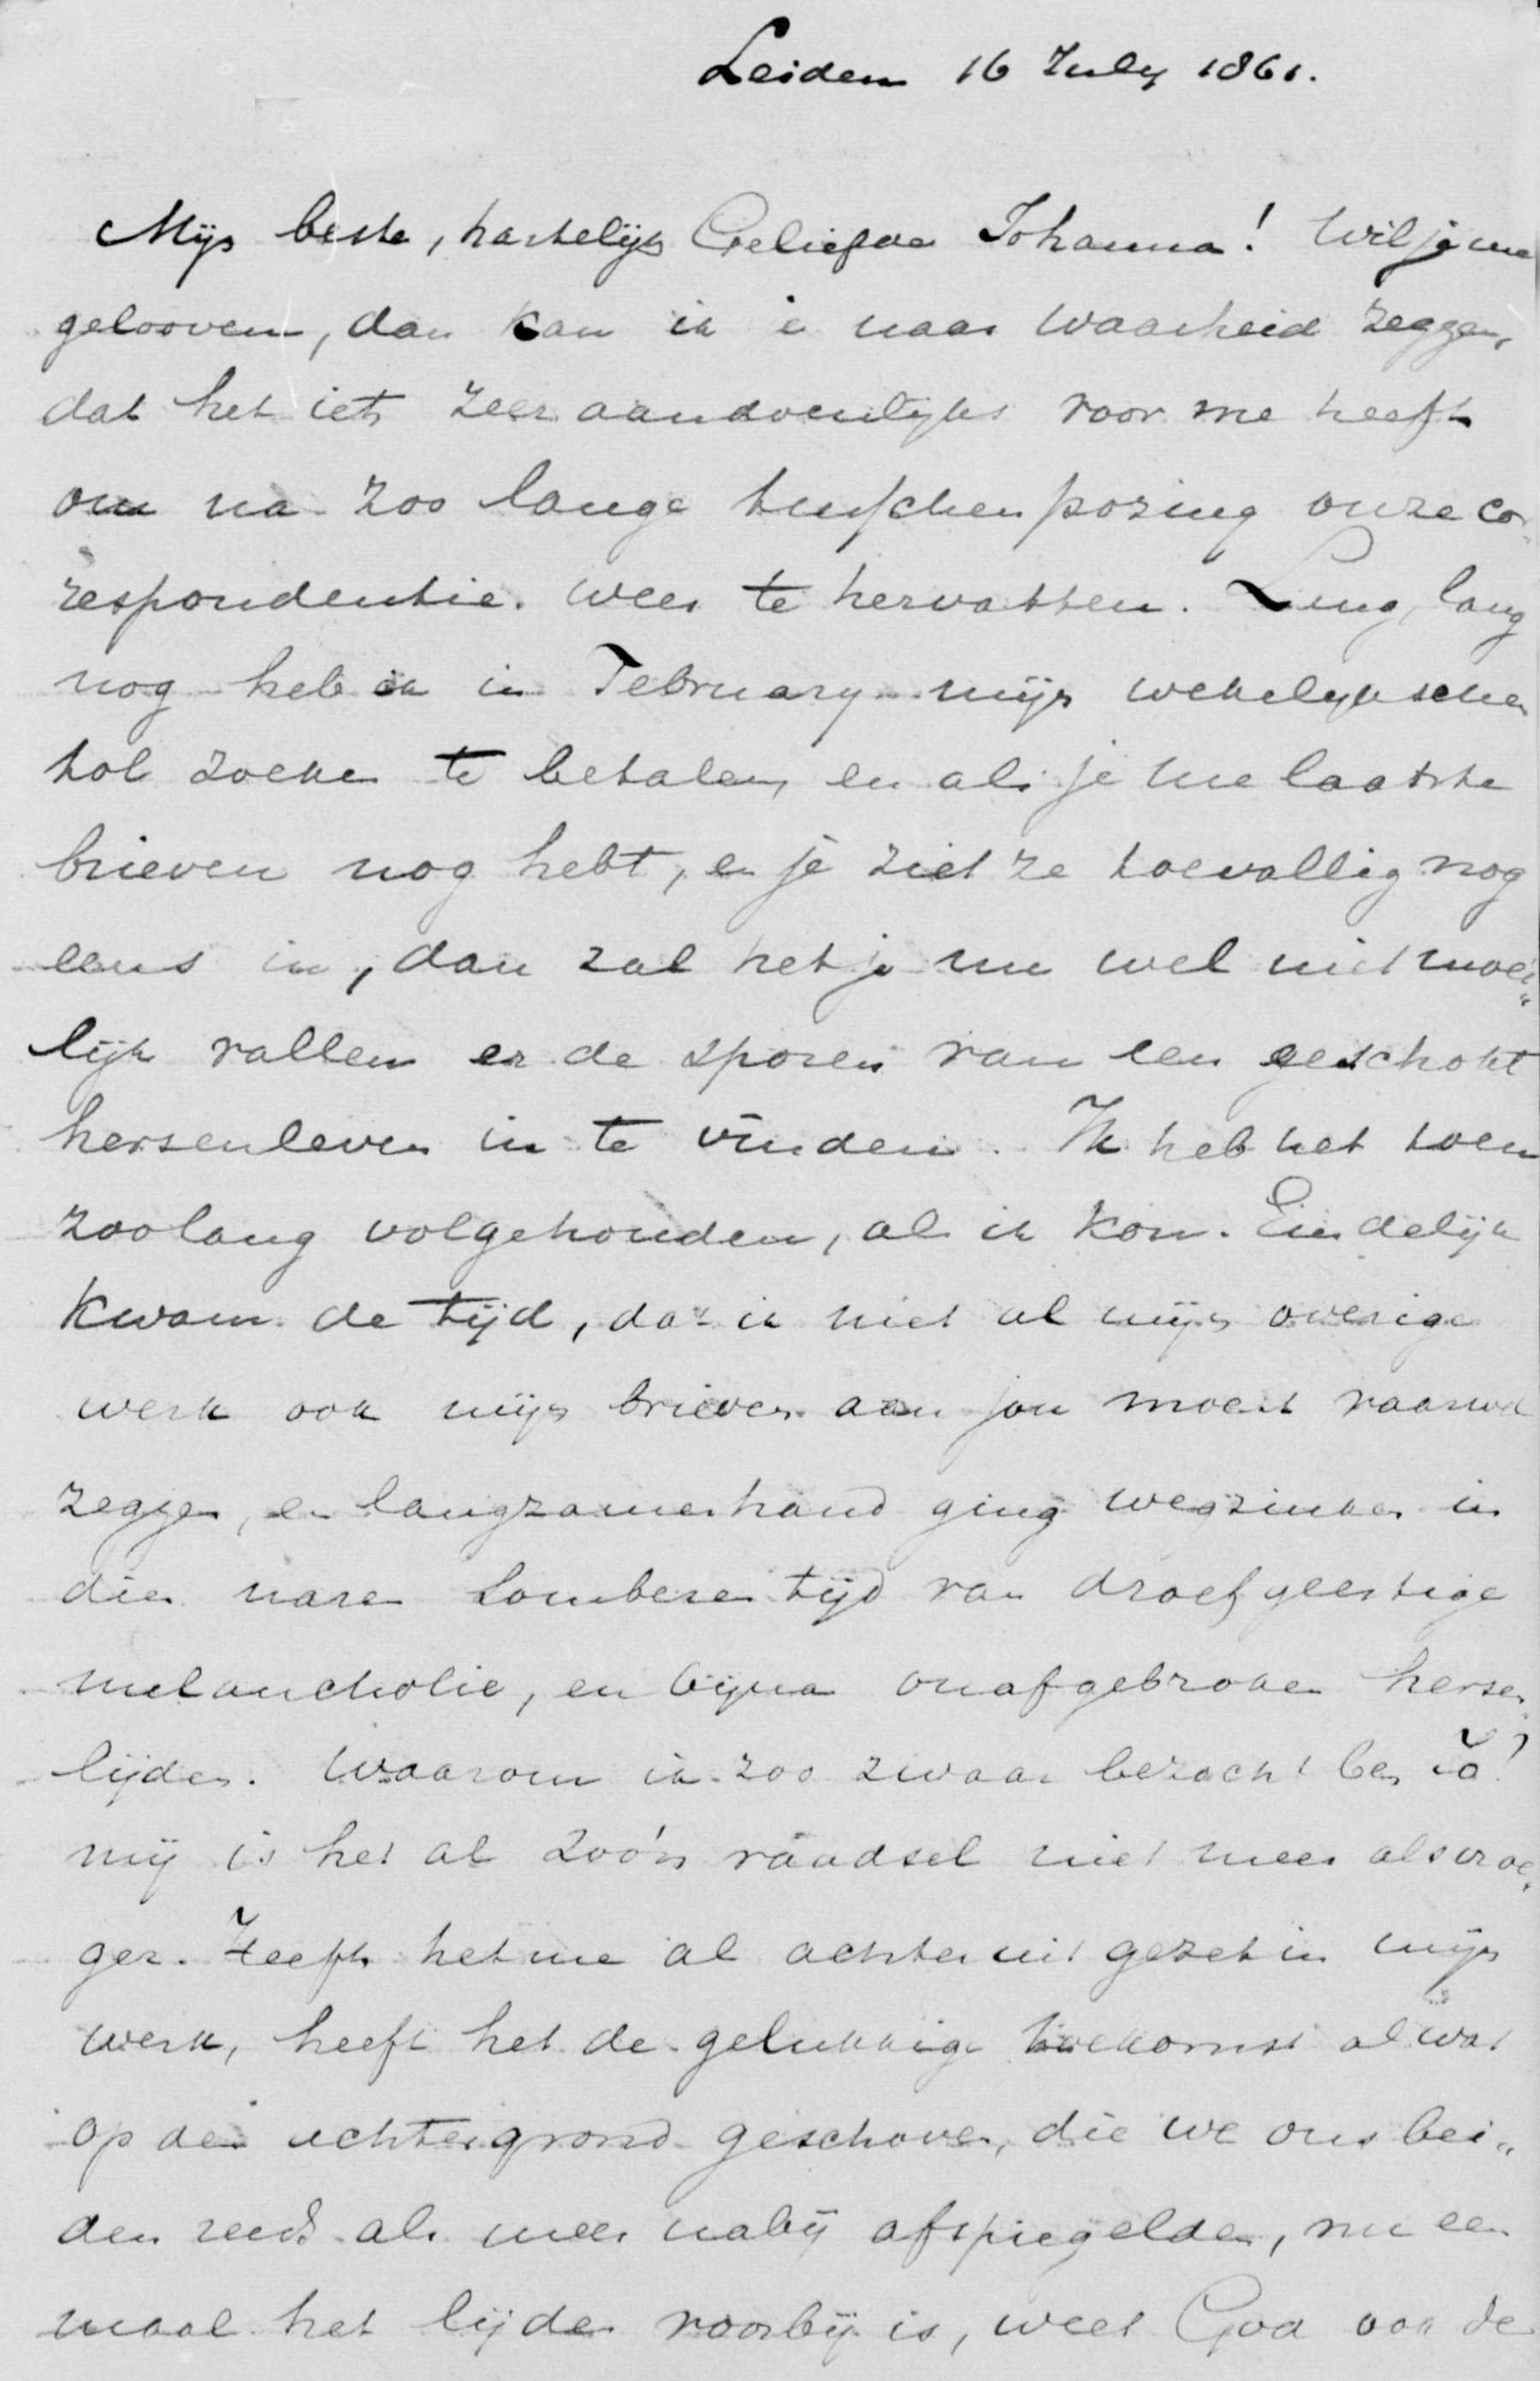 Leiden 16 July 1861.
Mijn beste, hartelijk Geliefde Johanna! Wil je me
gelooven, dan kan ik je naar waarheid zeggen,
dat het iets zeer aandoenlijks voor me heeft
om na zoo lange tusschenpozing onze cor-
respondentie weer te hervatten. Lang, lang
nog heb ik in February mijn wekelijkschen
tol zoeken te betalen, en als je me laatste
brieven nog hebt, en je ziet ze toevallig nog
eens in, dan zal het je nu wel niet moei„
lijk vallen er de sporen van een geschokt
hersenleven in te vinden. Ik heb het toen
zoolang volgehouden, als ik kon. Eindelijk
kwam de tijd, dat ik met al mijn overige
werk ook mijn brieven aan jou moest vaarwel
zeggen, en langzamerhand ging wegzinken in
dien naren somberen tijd van droefgeestige
melancholie, en bijna onafgebroken hersen„
lijden. Waarom ik zoo zwaar bezocht ben
mij is het al zoo'n raadsel niet meer als vroe„
ger. Heeft het me al achteruit gezet in mijn
werk, heeft het de gelukkige toekomst al wat
op den achtergrond geschoven, die we ons bei„
den reeds als meer nabij afspiegelden, nu een
maal het lijden voorbij is, weet God ook de